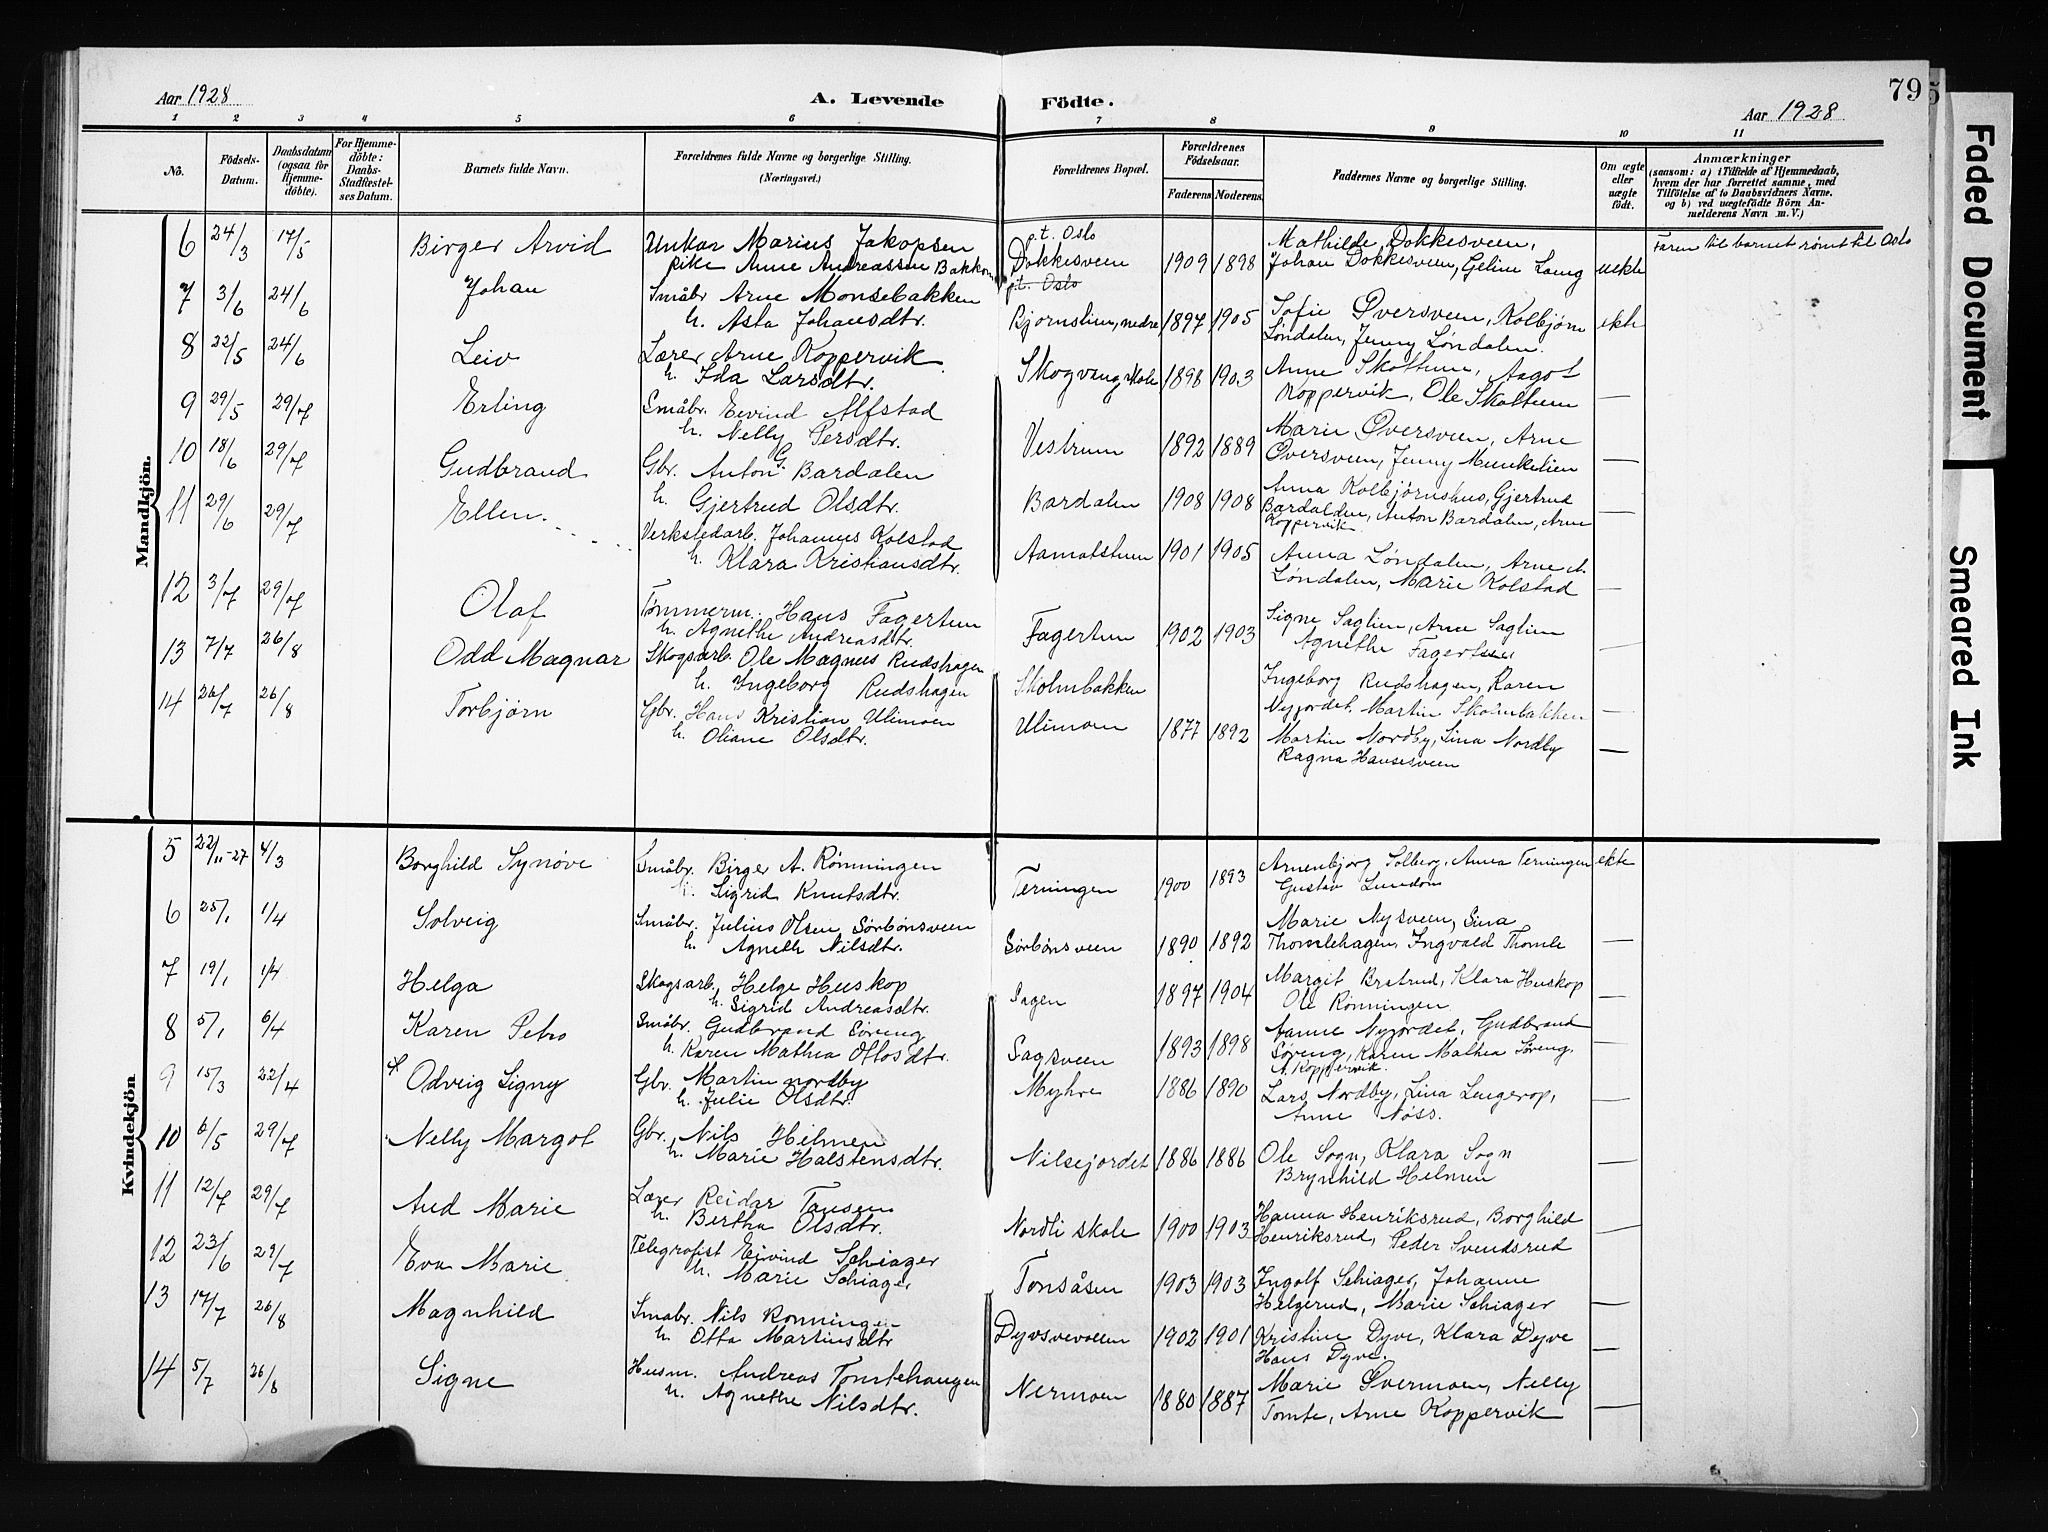 79
Aar 1928 A. Levende Födte. Aar 1928
1 2 3 4 5 6 7 8 9 10 11
No. Födsels-Datum. Daabsdatum (ogsaa for Hjemme-döbte). For Hjemme-döbte: Daabs-Stadfæstel-ses Datum. Barnets fulde Navn. Forældrenes fulde Navne og borgerlige Stilling. (Næringsvei.) Forældrenes Bopæl. Forældrenes Födselsaar. Faderens Moderens. Faddernes Navne og borgerlige Stilling. Om ægte eller uægte födt. Anmærkninger (saasom: a) i Tilfælde af Hjemmedaab, hvem der har forrettet samme, med Tilföielse af to Daabsvidners Navne. og b) ved uægtefödte Börn Anmelderens Navn m. V.)
Mandkjön.
6 24/3 17/5 Birger Arvid Unkar Marius Jakopsen p.t. Oslo Mathilde Dokkesveen, Faren til barnet rømt til Oslo
Pike Anne Andreassen Dokkesveen 1909 1898 Johan Dokkesveen, Geline uekte
7 3/6 24/6 Johan Småbr Arne Monsebakken p.t. Oslo
h. Asta Johansdtr. Bjørnslien, nedre 1897 1905 Sofie Øversveen, Kolbjørn ekte
8 22/5 24/6 Leiv Lærer Arne Koppervik Løndalen, Jenny Løndalen.
h. Ida Larsdtr. Skogvang skole 1898 1903 Anne Skoltun, Aagot
9 29/5 29/7 Erling Småbr. Eivind Alfstad Koppervik, Ole Skoltun —
h. Nelly Persdtr. Vestrum 1892 1889 Marie Øversveen, Arne
10 18/6 29/7 Gudbrand Gbr. Anton G. Bardalen Øversveen, Jenny Munkelien —
h. Gjertrud Olsdtr. Bardalen 1908 1908 Anna Kolbjørnshus, Gjertrud
11 29/6 29/7 Ellen Verkstedarb. Johannes Kolstad Bardalden, Anton Bardalen, Arne Koppervik —
h. Klara Kristiansdtr. Aamotshun 1901 1905 Anna Løndalen, Arne N. Løndalen, Marie Kolstad —
12 3/7 29/7 Olaf Tømmerm. Hans Fagertun
h. Agnethe Andreasdtr. Fagertun 1902 1903 Signe Saglien, Arne Saglien
13 7/7 26/8 Odd Magnar Skogsarb. Ole Magnus Rudshagen Agnethe Fagertun —
h. Ingeborg Rudshagen Skolmbakken Ingeborg Rudshagen, Karen
14 26/7 26/8 Torbjørn Gbr. Hans Kristian Ulimoen Nyjordet, Martin Skolmbakken —
h. Oliane Olsdtr. Ulimoen 1877 1892 Martin Nordby, Lina Nordby
Ragna Hansesveen —
Kvindekjön
5 22/11-27 4/3 Borghild Synøve Småbr. Birger A. Rønningen Arnenbjørg Solberg, Anna Terningen ekte
h. Sigrid Knutsdtr. Terningen 1900 1893 Gustav Lundom
6 25/1 1/4 Solveig Småbr. Julius Olsen Sørbønsveen Marie Nysveen, Lina
h. Agneth Nilsdtr. Sørbønsveen 1890 1892 Thomlehagen, Ingvald Thomle —
7 19/1 1/4 Helga Skogsarb, Helge Huskop Margit Bratrud, Klara Huskop
h. Sigrid Andreasdtr. Sagen 1897 1904 Ole Rønningen —
8 5/1 6/4 Karen Petro Småbr. Gudbrand Søreng Hanne Nyjordet, Gudbrand
h. Karen Mathea Ottosdtr. Sagsveen 1893 1898 Søreng, Karen Mathea Søreng, A. Koppervik. —
9 15/3 22/4 Odveig Signy Gbr. Martin nordby Myhre 1886 1890 Lars Nordby, Lina Lengerop,
h. Julie Olsdtr. Anne Nøss. —
10 6/5 29/7 Nelly Margot Gbr, Nils Hilmen
h. Marie Halstensdtr. Nilsejordet 1886 1886 Ole Sogn, Klara Sogn
Brynhild Helmen —
11 12/7 29/7 Aud Marie Lærer Reidar Tansem
h. Bertha Olsdtr. Nordli skole 1900 1903 Hanna Henriksrud, Borghild
Henriksrud, Peder Svendsrud —
12 23/6 29/7 Eva Marie Telegrafist Eivind Schiager
h. Marie Schiager Tonsåsen 1903 1903 Ingolf Schiager, Johanne
13 17/7 26/8 Magnhild Småbr. Nils Rønningen Helgerud, Marie Schiager —
h. Otta Martinsdtr Dyvsvevollen 1902 1901 Kristine Dyve, Klara Dyve
Hans Dyve. —
14 5/7 26/8 Signe Husm. Andreas Tomtehaugen
h. Agnethe Nilsdtr. Nermoen 1880 1887 Marie Svermoen, Nelly
Tomte, Arne Koppervik —
Faded Document
Smeared Ink